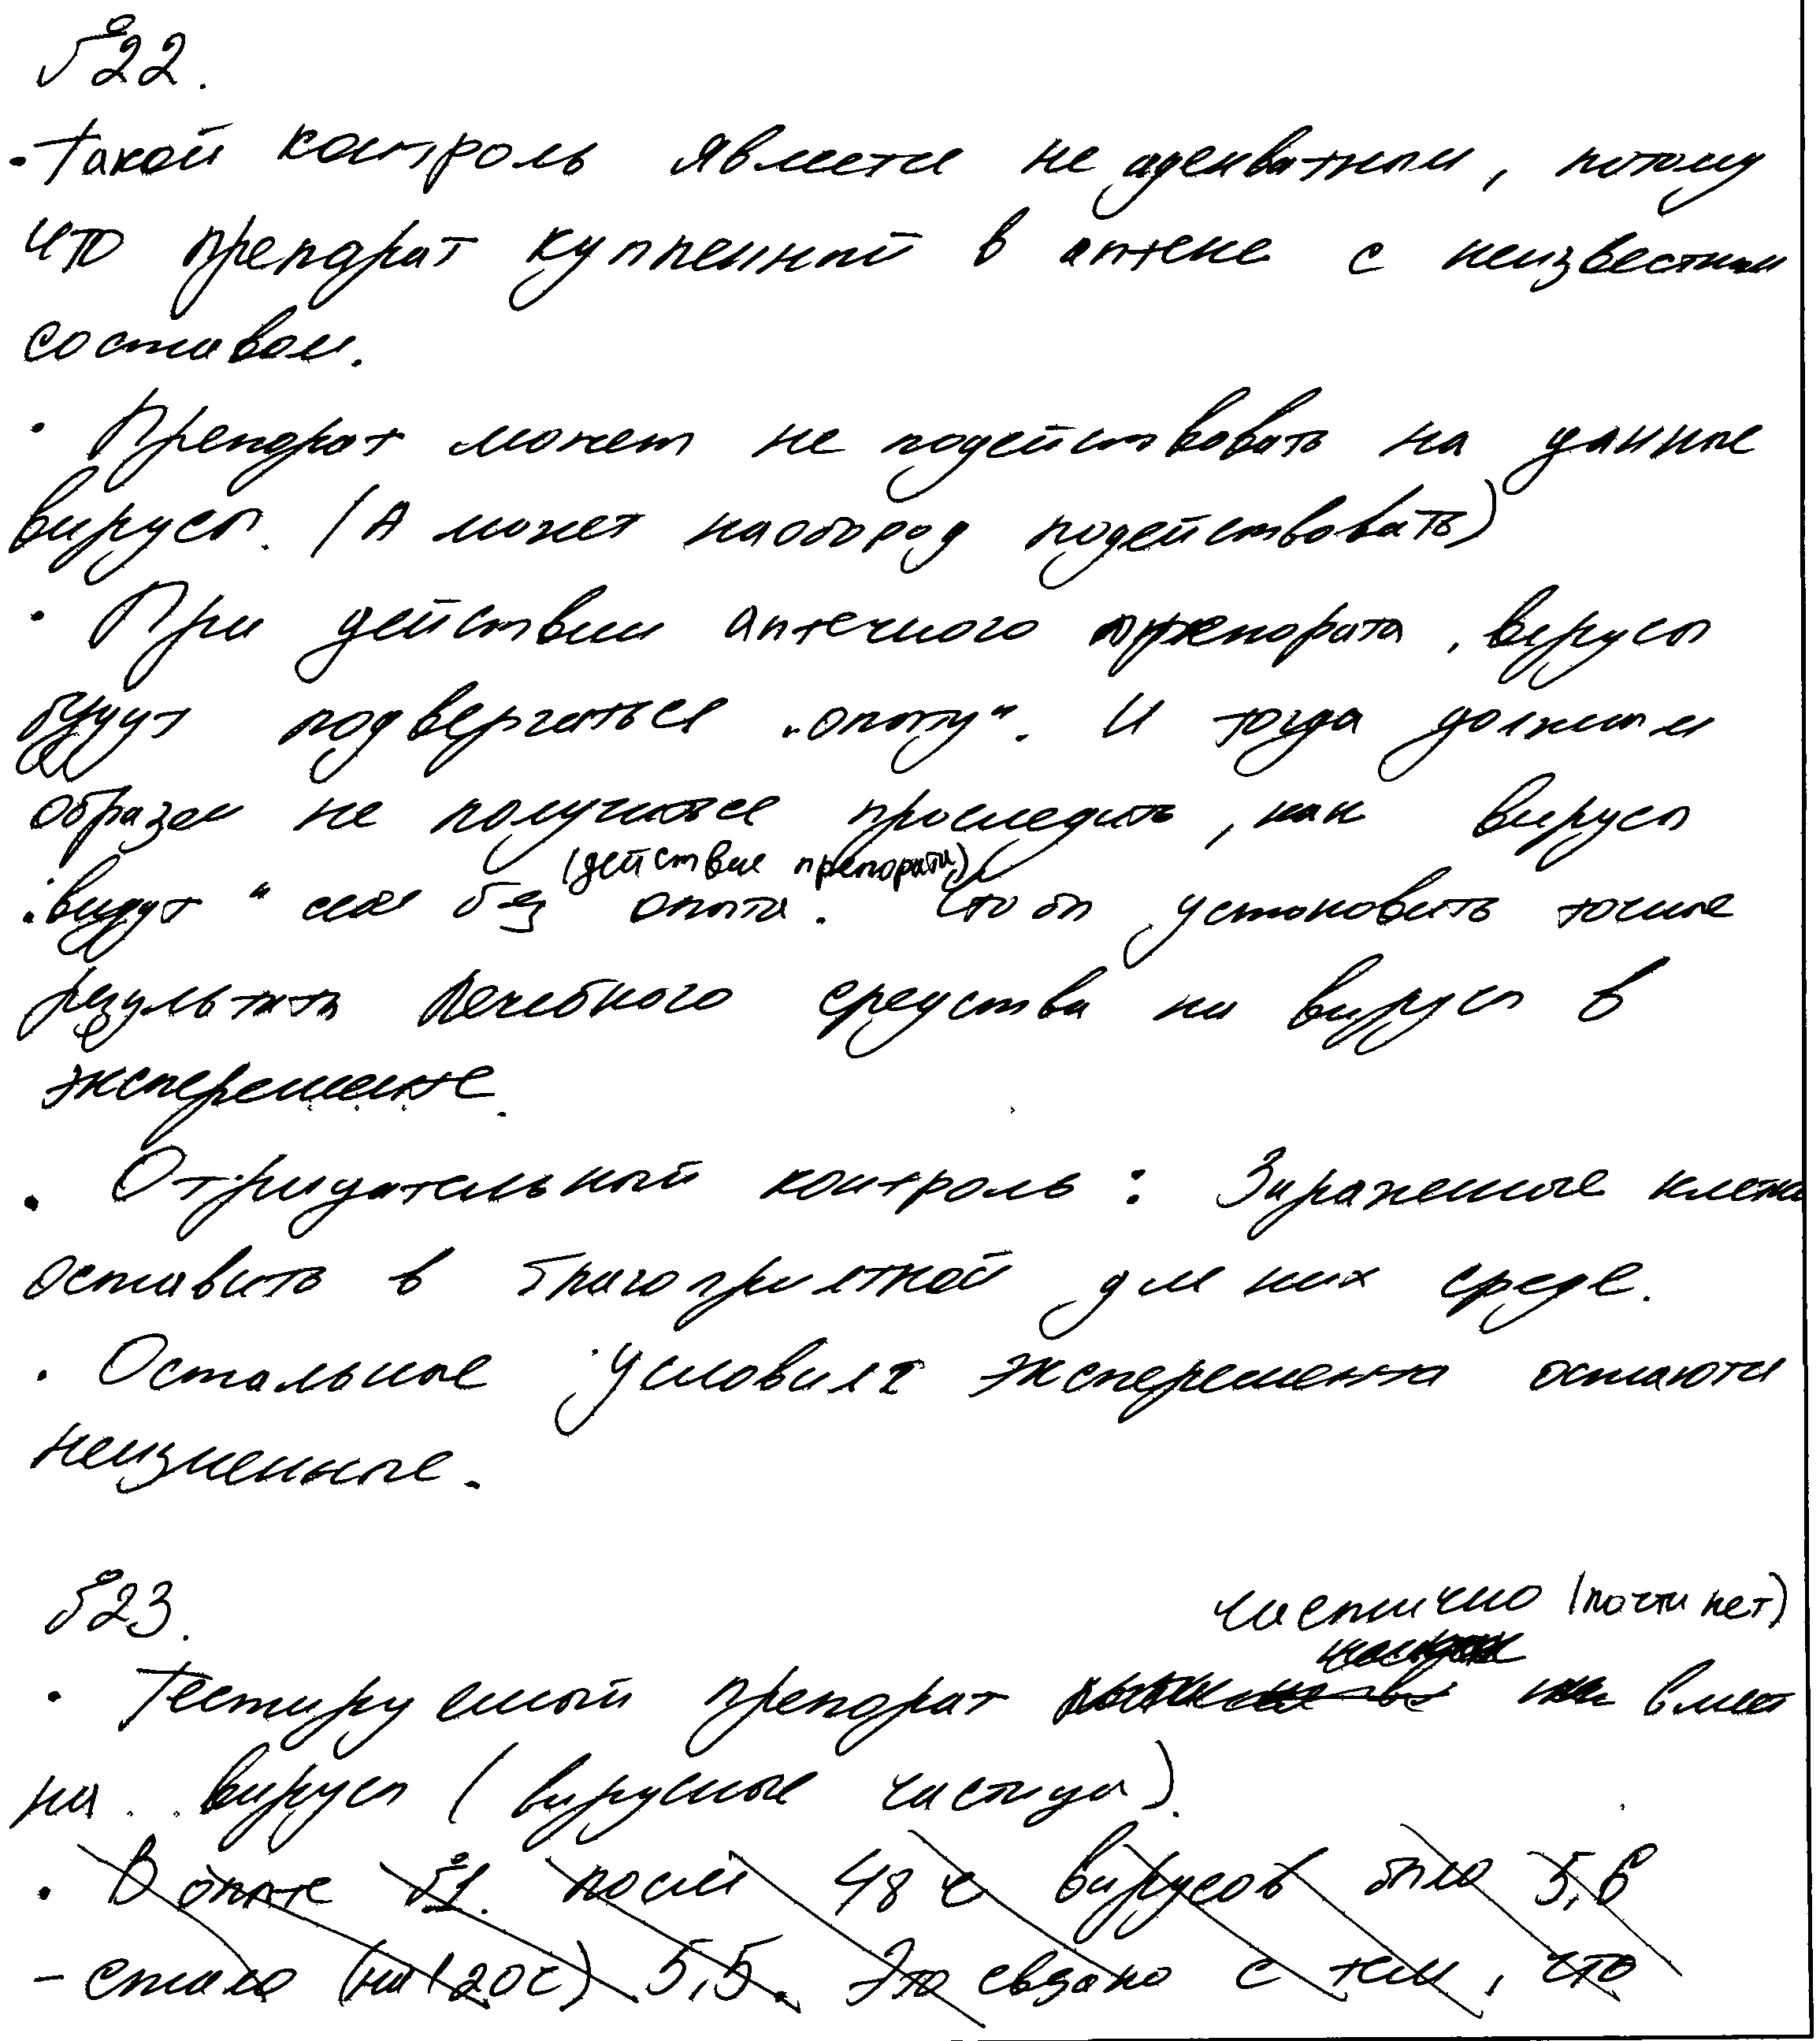 №22.
• Такой контроль является не адекватным, потому
что препарат купленный в аптеке с неизвестным
составом.
• Препарат может не подействовать на данные
вирусы. (А может наобород подействовать)
• При действии аптечного препората, вирусы
будут подвергаться "опыту". И тогда должным
образом не получиться проследить, как вирусы
"видут" себя без (действие препората) опыта. Что бы установить точные
результаты лечебного средства на вирусы в
эксперементе.
• Отрицательный контроль: Зараженные клетки
оставить в благоприятной для них среде.
• Остальные условия эксперемента остаются
неизменные.
№23.
частично (почти нет)
• Тестируемый препарат влияет
на вирусы (вирусные частицы).
• В опыте №1. после 48 ч вирусов было 5,6
- стало (на 120ч) 5,5. Это связано с тем, что